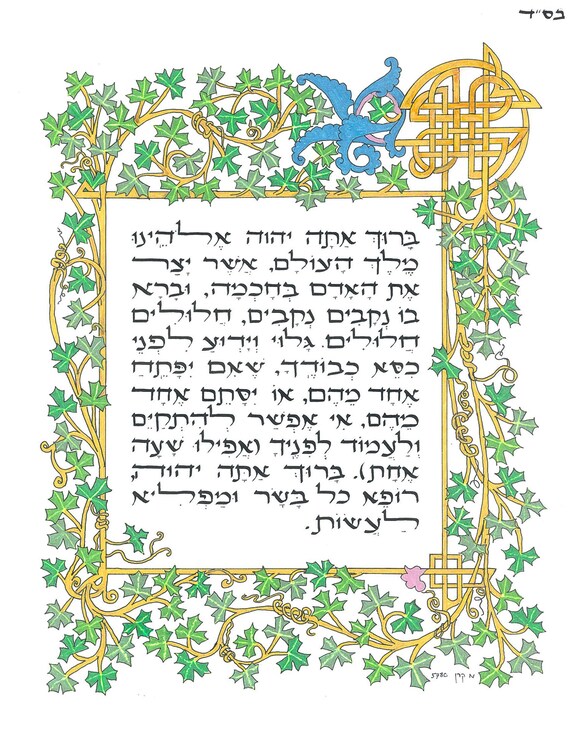 בס״ד
בָּרוּךְ אַתָּה יהוה אֱלֹהֵינוּ
מֶלֶךְ הָעוֹלָם, אֲשֶׁר יָצַר
אֶת הָאָדָם בְּחָכְמָה, וּבָרָא
בוֹ נְקָבִים נְקָבִים, חֲלוּלִים
חֲלוּלִים. גָּלוּי וְיָדוּעַ לִפְנֵי
כִסֵּא כְבוֹדֶךָ, שֶׁאִם יִפָּתֵחַ
אֶחָד מֵהֶם, אוֹ יִסָּתֵם אֶחָד
מֵהֶם, אִי אֶפְשַׁר לְהִתְקַיֵּם
וְלַעֲמוֹד לְפָנֶיךָ (אֲפִילוּ שָׁעָה
אֶחָת). בָּרוּךְ אַתָּה יהוה,
רוֹפֵא כָל בָּשָׂר וּמַפְלִיא
לַעֲשׂוֹת.